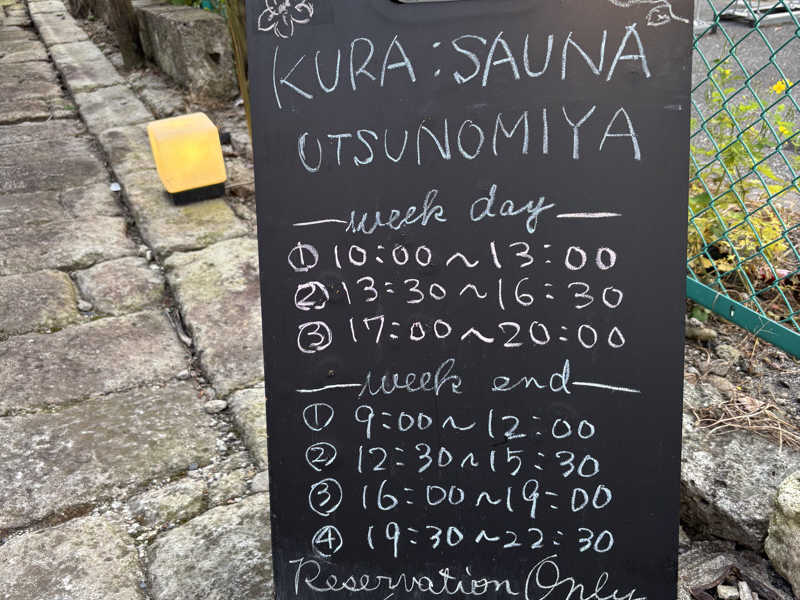 KURA:SAUNA
UTSUNOMIYA
week day
① 10:00~13:00
② 13:30~16:30
③ 17:00~20:00
week end
① 9:00~12:00
② 12:30~15:30
③ 16:00~19:00
④ 19:30~22:30
Reservation Only